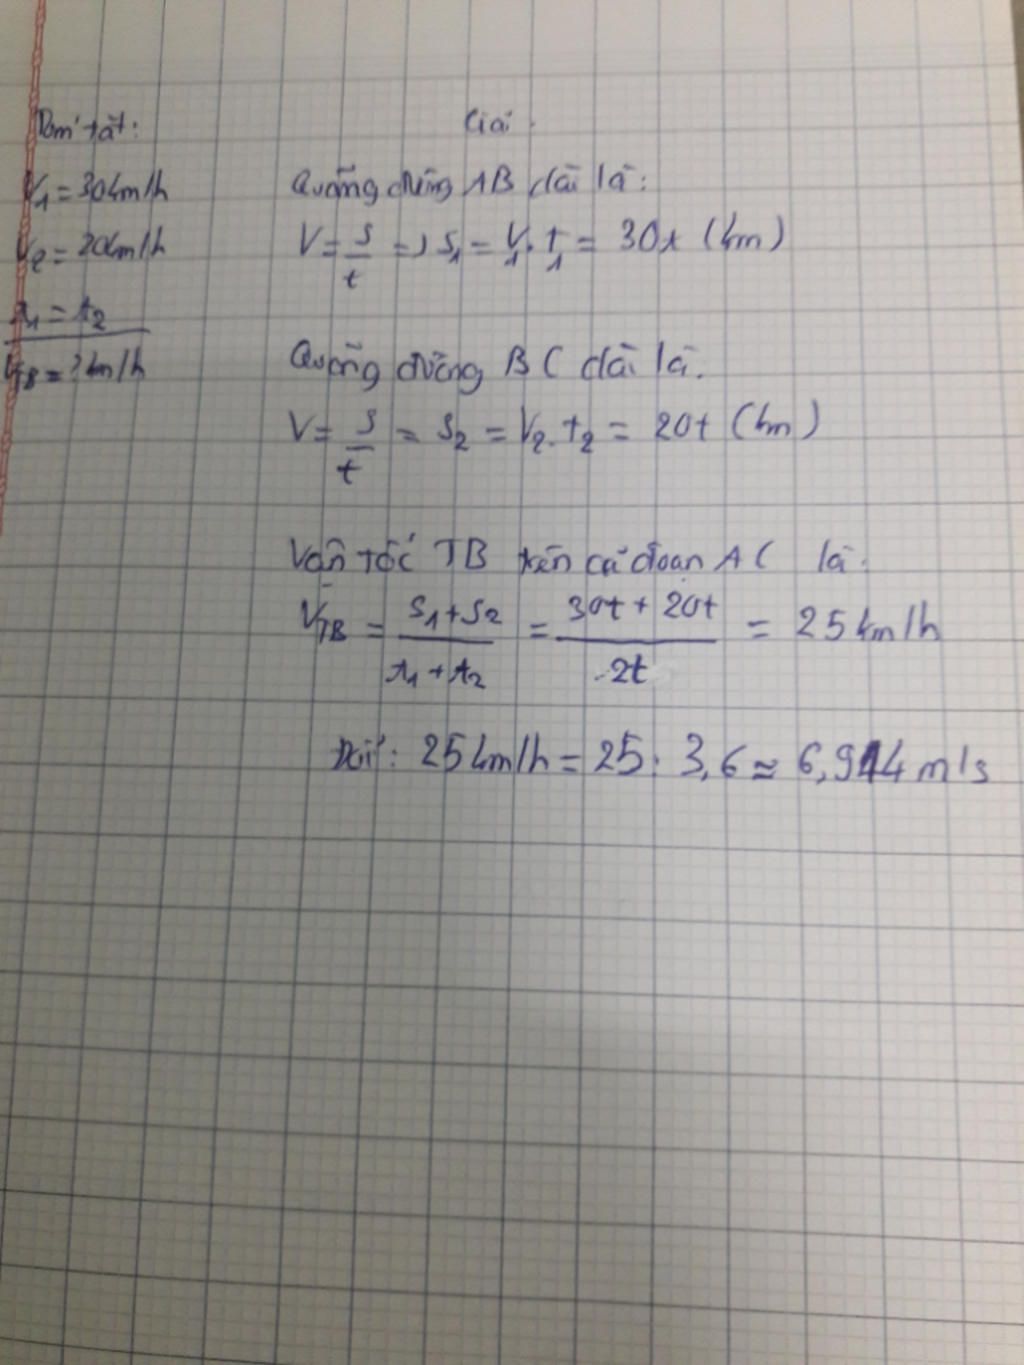 Tóm tắt:
V1 = 30km/h
V2 = 20km/h
t1 = t2
VTB = ? km/h
Giải
Quãng đường AB dài là:
V = s/t => S1 = V1. t1 = 30t (km)
Quãng đường BC dài là.
V = s/t = S2 = V2. t2 = 20t (km)
Vận tốc TB trên cả đoạn AC là:
VTB = S1+S2/t1+t2 = 30t + 20t/2t = 25km/h
Đổi: 25km/h = 25: 3,6 ≈ 6,944 m/s